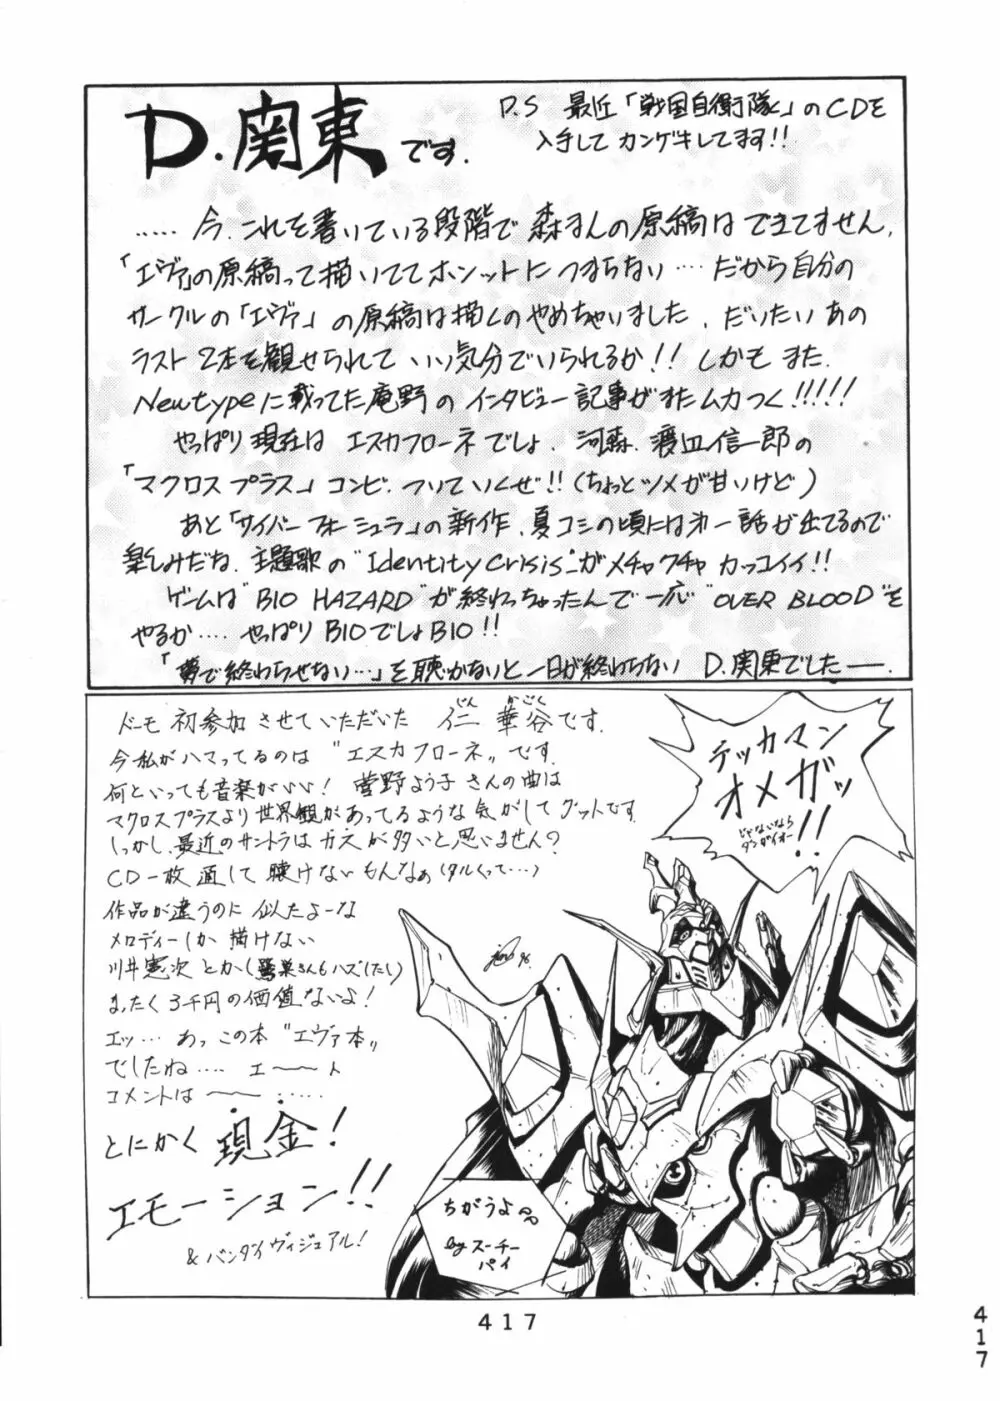 D.関東です.
P.S 最近「戦国自衛隊」のCDを
入手して カンゲキしてます!!
…… 今、これを書いている段階で 森さんの原稿はできてません。
「エヴァ」の原稿って描いててホンットにつまらない … だから自分の
サークルの「エヴァ」の原稿は描くのやめちゃいました。だいたい あの
ラスト 2本を観せられて いい気分でいられるか!! しかも また、
Newtypeに載ってた庵野の インタビュー記事がまたムカつく!!!!!
やっぱり現在は エスカフローネでしょ。河森、渡辺信一郎の
「マクロスプラス」コンビ。ついていくぜ!!(ちょっとツメが甘いけど)
あと「サイバーフォーミュラ」の新作、夏コミの頃には才一話が出てるので
楽しみだね。主題歌の"Identity Crisis"がメチャクチャ カッコイイ!!
ゲームは"BIO HAZARD"が終わっちゃったんで一応"OVER BLOOD"を
やるか…. やっぱり BIOでしょ BIO!!
「夢で終わらせない…」を聴かないと一日が終わらない D.関東でした—.
ドーモ 初参加 させて いただいた 仁 華谷です.
じん かごく
今私がハマってるのは "エスカフローネ" です.
何といっても音楽がいい! 菅野よう子さんの曲は
マクロスプラスより世界観があってるような気がして グットです
しかし、最近のサントラは カスが多いと思いません?
CD一枚 通して 聴けないもんなぁ(タルくって…)
作品が違うのに 似たよーな
メロディーしか描けない
川井憲次 とかく鷺巣さんもハズしたし)
まったく 3千円の価値ないよ!
エッ… あっ この本 "エヴァ本"
でしたね…. エ〜〜ト
コメントは 〜〜 ・・・・・
とにかく 現金!
エモーション!!
& バンダイヴィジュアル!
テッカマン
オメガッ
!!
じゃないなら
ダンガイオー
96.
ちがうよ
by スーチー
パイ
417
417